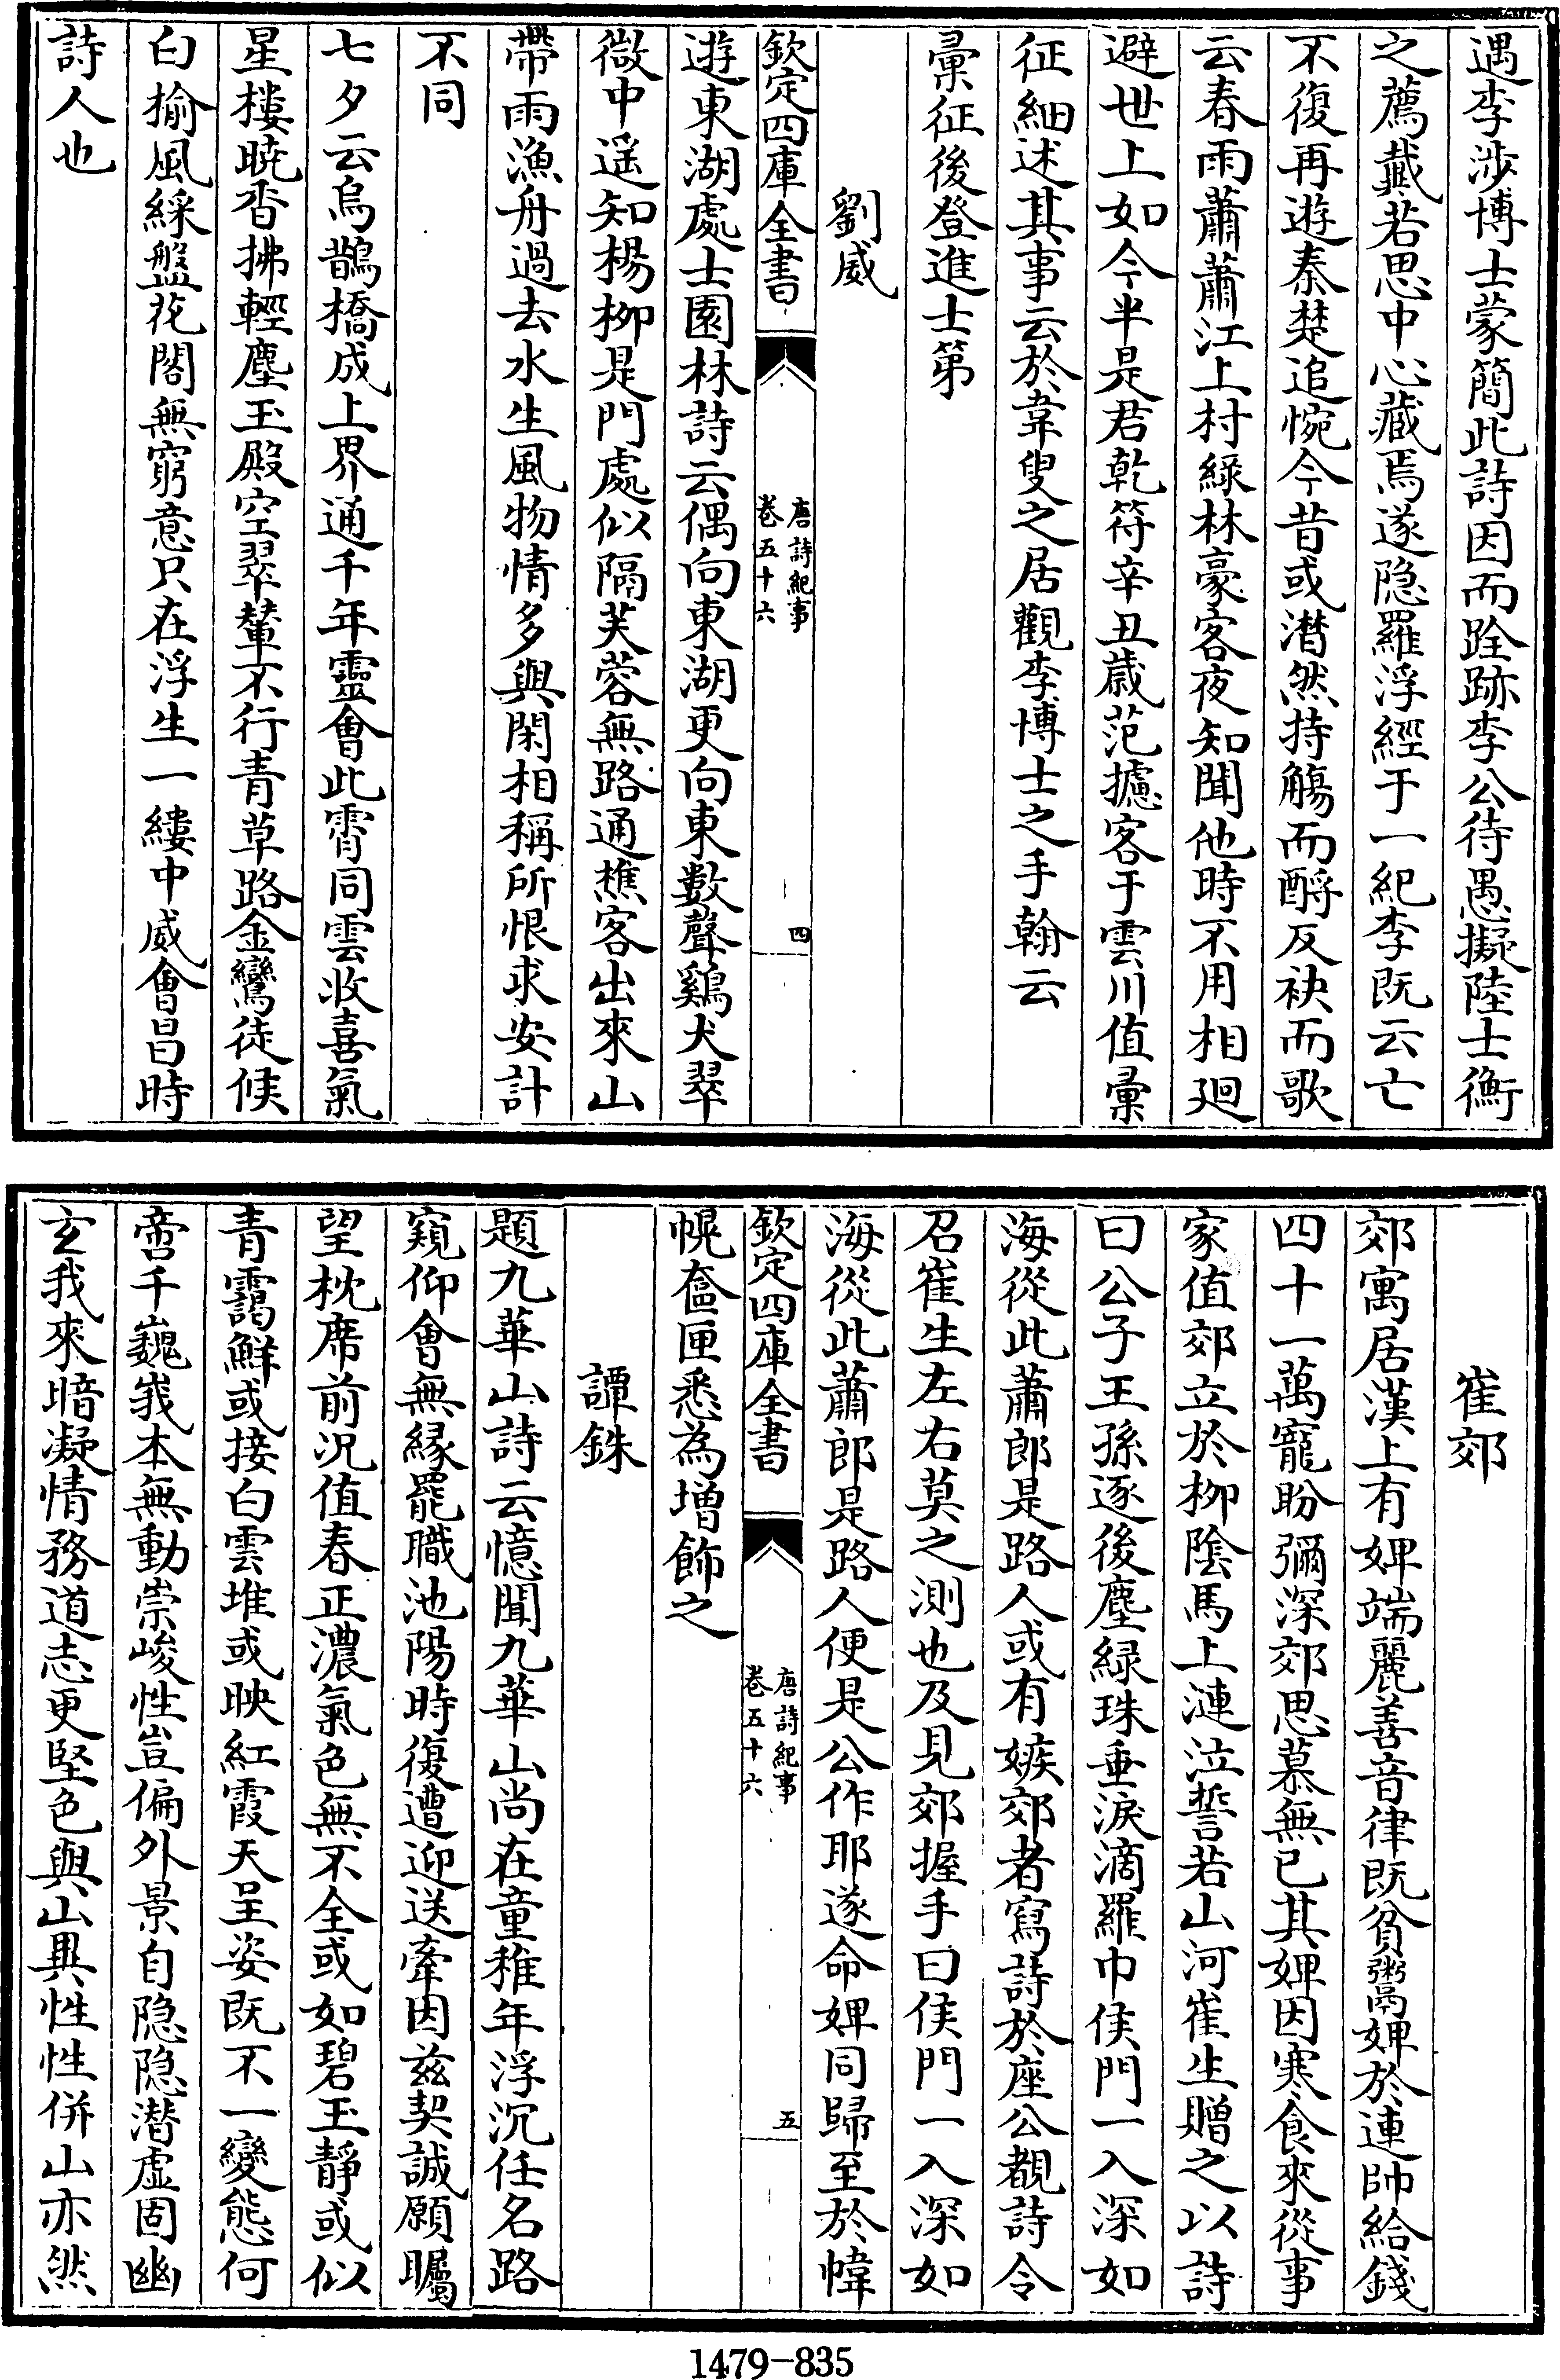 遇李涉博士蒙簡此詩因而跧跡李公待愚擬陸士衡
之薦戴若思中心藏焉遂隱羅浮經于一紀李既云亡
不復再遊秦楚追惋今昔或潸然持觴而酹反袂而歌
云春雨蕭蕭江上村綠林豪客夜知聞他時不用相廻
避世上如今半是君乾符辛丑歲范攄客于雲川值彙
征細述其事云於韋叟之居觀李博士之手翰云
彙征後登進士第
劉威
欽定四庫全書
唐詩紀事
卷五十六
四
遊東湖處士園林詩云偶向東湖更向東數聲鷄犬翠
微中遥知楊柳是門處似隔芙蓉無路通樵客出來山
帶雨漁舟過去水生風物情多與閑相稱所恨求安計
不同
七夕云烏鵲橋成上界通千年靈會此霄同雲收喜氣
星樓曉香拂輕塵玉殿空翠輦不行青草路金鸞徒候
白揄風綵盤花閣無窮意只在浮生一縷中威會昌時
詩人也
崔郊
郊寓居漢上有婢端麗善音律既貧鬻婢於連帥給錢
四十一萬寵盼彌深郊思慕無已其婢因寒食來從事
家值郊立於柳陰馬上漣泣誓若山河崔生贈之以詩
曰公子王孫逐後塵緑珠垂淚滴羅巾侯門一入深如
海從此蕭郎是路人或有嫉郊者寫詩於座公覩詩令
召崔生左右莫之測也及見郊握手曰侯門一入深如
海從此蕭郎是路人便是公作耶遂命婢同歸至於幃
欽定四庫全書
唐詩紀事
卷五十六
五
幌奩匣悉為增飾之
譚銖
題九華山詩云憶聞九華山尚在童稚年浮沉任名路
窺仰會無緣罷職池陽時復遭迎送牽因兹契誠願矚
望枕席前况值春正濃氣色無不全或如碧玉靜或似
青靄鮮或接白雲堆或映紅霞天呈姿既不一變態何
啻千巍峩本無動崇峻性豈偏外景自隱隱潜虚固幽
玄我來暗凝情務道志更堅色與山異性性併山亦然
1479-835